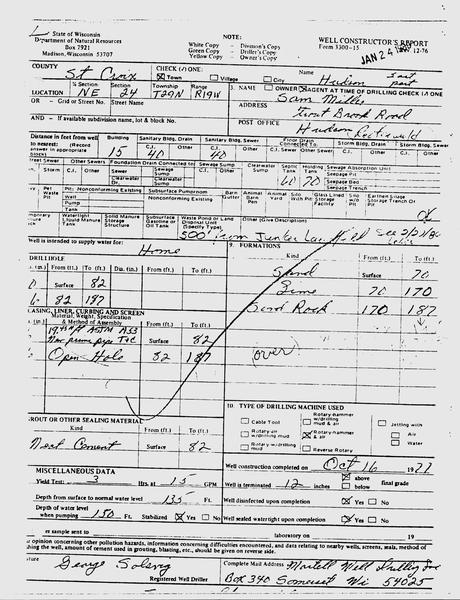 State of Wisconsin
Department of Natural Resources
Box 7921
Madison, Wisconsin 53707
NOTE:
White Copy - Division's Copy
Green Copy - Driller's Copy
Yellow Copy - Owner's Copy
WELL CONSTRUCTOR'S REPORT
Form 3300-15 12-76
JAN 24
COUNTY St Croix
CHECK (√) ONE: Town Village City
Name Hudson
LOCATION ¼ Section NE Section 24 Township T29N Range R19W
3. NAME OWNER AGENT AT TIME OF DRILLING CHECK (√) ONE
Sam Miller
OR - Grid or Street No. Street Name
ADDRESS Trout Brook Road
AND - If available subdivision name, lot & block No.
POST OFFICE Hudson
Distance in feet from well to nearest: Building Sanitary Bldg. Drain Sanitary Bldg. Sewer Floor Drain Connected To: Storm Bldg. Drain Storm Bldg. Sewer
(Record answer in appropriate block) 15 40 40
Street Sewer Other Sewers Foundation Drain Connected to: Sewage Sump Clearwater Sump Septic Tank Holding Tank Sewage Absorption Unit
Seepage Pit
Seepage Bed
Seepage Trench
60 70
Pet Waste Pit Pit: Nonconforming Existing Subsurface Pumproom Barn Gutter Animal Barn Pen Animal Yard Silo With Pit Glass Lined Storage Facility Silo w/o Pit Earthen Silage Storage Trench Or Pit
Well
Pump
Tank
Nonconforming Existing
Temporary Manure Watertight Liquid Manure Tank Solid Manure Storage Structure Subsurface Gasoline or Oil Tank Waste Pond or Land Disposal Unit (Specify Type) Other (Give Description)
500' from Junker Landfill see
Well is intended to supply water for: Home
9. FORMATIONS
DRILLHOLE
Kind From (ft.) To (ft.)
Dia. (in.) From (ft.) To (ft.) Dia. (in.) From (ft.) To (ft.)
Surface 82
6 82 187
Sand Surface 70
Lime 70 170
Sand Rock 170 187
CASING, LINER, CURBING AND SCREEN
Material, Weight, Specification & Method of Assembly From (ft.) To (ft.)
New prime pipe T&C Surface 82
Open Hole 82 187
over
GROUT OR OTHER SEALING MATERIAL
Kind From (ft.) To (ft.)
Neat Cement Surface 82
10. TYPE OF DRILLING MACHINE USED
Cable Tool Rotary-hammer w/drilling mud & air Jetting with
Rotary-air w/drilling mud Rotary-hammer & air Air
Rotary-w/drilling mud Reverse Rotary Water
MISCELLANEOUS DATA
Well construction completed on Oct 16 19
Yield Test: 3 Hrs at 15 GPM
Well is terminated 12 inches above below final grade
Depth from surface to normal water level 135 Ft.
Well disinfected upon completion Yes No
Depth of water level when pumping 150 Ft. Stabilized Yes No
Well sealed watertight upon completion Yes No
sample sent to laboratory on 19
opinion concerning other pollution hazards, information concerning difficulties encountered, and data relating to nearby wells, screens, seals, method of
finishing the well, amount of cement used in grouting, blasting, etc., should be given on reverse side.
George Solberg
Registered Well Driller
Complete Mail Address Martell Well Drilling Inc
Box 340 Somerset Wi 54025